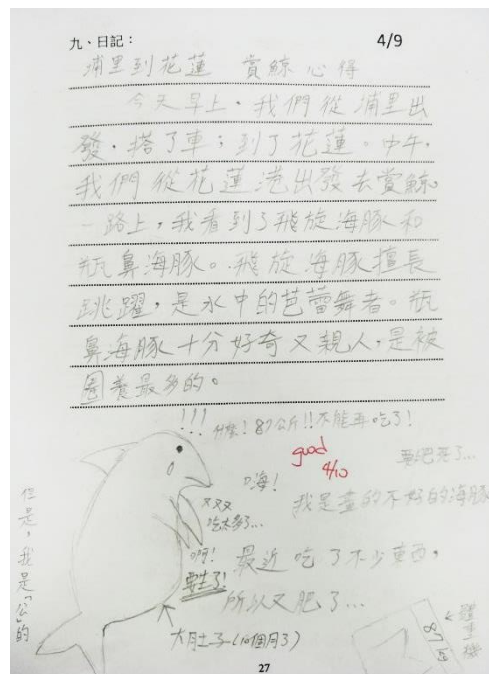 九、日記：
4/9
埔里到花蓮 賞鯨心得
今天早上，我們從埔里出
發，搭了車；到了花蓮。中午，
我們從花蓮港出發去賞鯨。
一路上，我看到了飛旋海豚和
瓶鼻海豚。飛旋海豚擅長
跳躍，是水中的芭蕾舞者。瓶
鼻海豚十分好奇又親人，是被
圈養最多的。
!!!
什麼！87公斤!!不能再吃了！
good
4/10
要肥死了…
嗨！
我是畫的不好的海豚
又又又
吃太多了…
但是，我是「公」的
啊！
要生了！
最近吃了不少東西，
所以又肥了…
大肚子(10個月了)
體重機
87
27